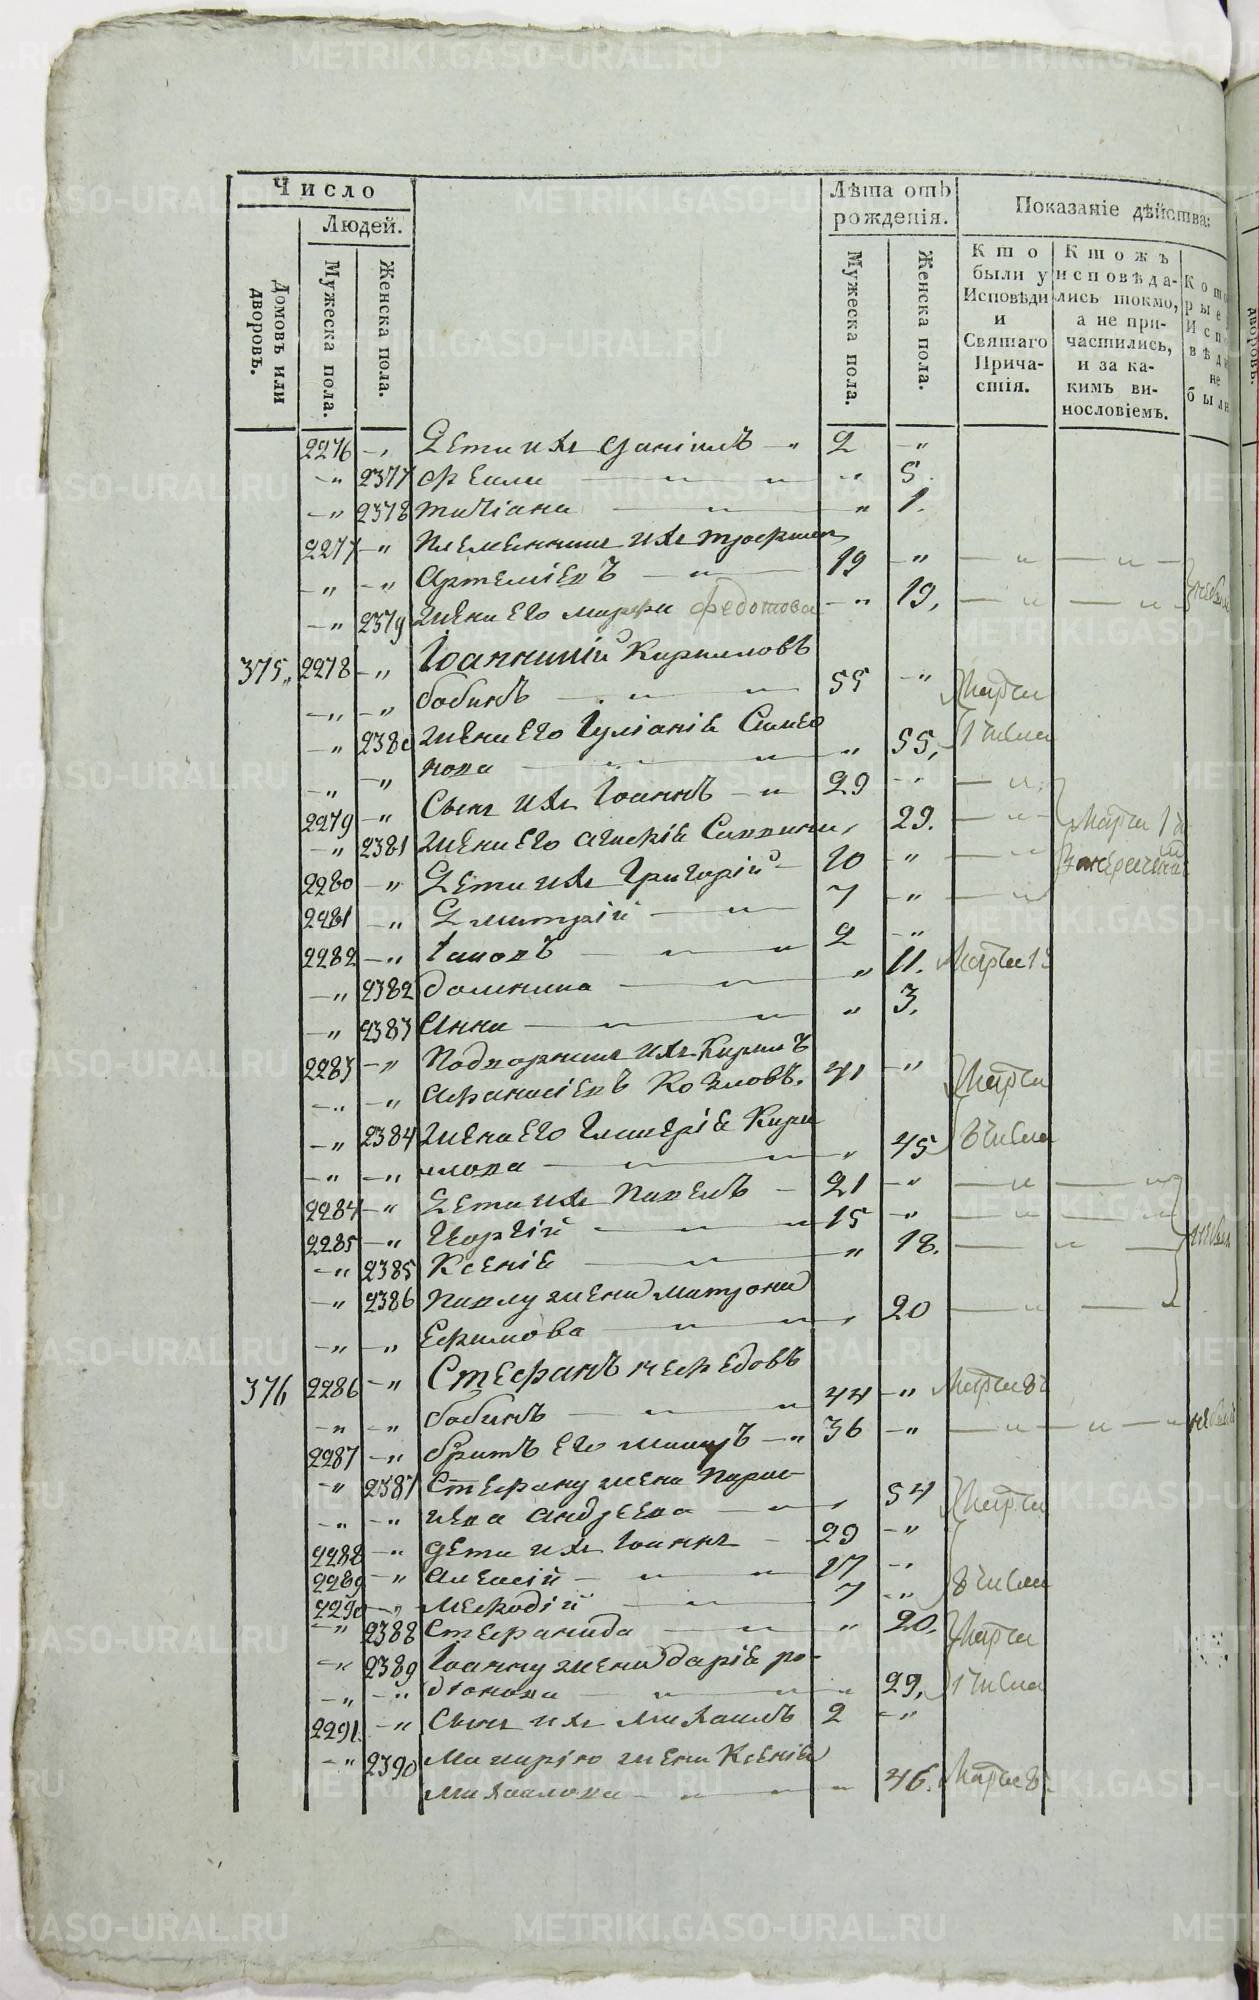 Число
Людей.
Домовъ или дворовъ.
Мужеска пола.
Женска пола.
Лѣта отъ рожденія.
Мужеска пола.
Женска пола.
Показаніе дѣйства:
Кто были у Исповѣди и Святаго Причастія.
Ктожъ исповѣдались токмо, а не причастились, и за какимъ винословіемъ.
Которые Исповѣди не были
2276 Дети ихъ Даніилъ 2
2377 5.
2378 татіана 1.
2277 Племянникъ ихъ
Артеміевъ 19
2379 Жена его марфа федотова 19,
375, 2278 Іоанникій Кирилловъ
бабинъ 55 Марта
2380 Жена его Іуліаніа Симео
нова 55, 1 числа
2279 Сынъ ихъ Іоаннъ 29
2381 Жена его 29. Марта 1
2280 Дети ихъ Григорій 10
2281 Дмитрій 7
2282 Іаковъ 2
2382 домника 11. Марта 1
2383 Анна 3.
2283 Подворникъ ихъ Кирилъ
Афанасіевъ Козловъ. 41 Марта
2384 Жена его Гликеріа Кири
лова 45 8 числа
2284 Дети ихъ Павелъ 21
2285 Георгій 15
2385 Ксеніа 18.
2386 Павлу жена матрона
Ефимова 20
376 2286 Стефанъ
бабинъ 44 Марта 8
2287 братъ его 36
2387 Стефану жена Парас
кева Андреева 54 Марта
2288 дети ихъ Іоаннъ 29
2289 Алексій 17
2290 Мефодій 7 8 числа
2388 Стефанида 20. Марта
2389 Іоанну жена даріа ро-
діонова 29, 1 числа
2291. Сынъ ихъ Михаилъ 2
2390 Макарію жена Ксеніа
Михаилова 46. Марта 8
METRIKI.GASO-URAL.RU